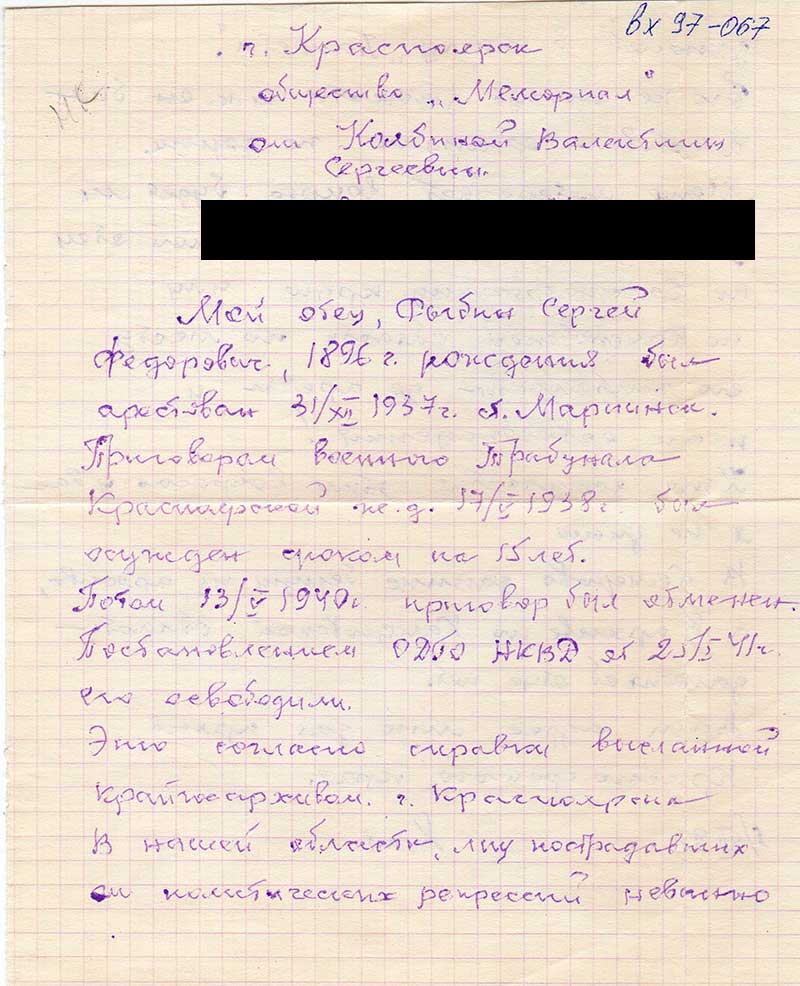 вх 97-067
г. Красноярск
общество „Мемориал"
от Колбиной Валентины
Сергеевны.
Мой отец, Сергей
Федорович, 1896 г. рождения был
арестован 31/XII 1937г. ст. Мариинск.
Приговором военного Трибунала
Красноярской ж.д. 17/V 1938г. был
осужден сроком на 15 лет.
Потом 13/V 1940г. приговор был отменен.
Постановлением ОДТО НКВД от 41г.
его освободили.
Это согласно справки высланной
крайгосархивом г. Красноярска
В нашей области, лиц пострадавших
от политических репрессий невинно